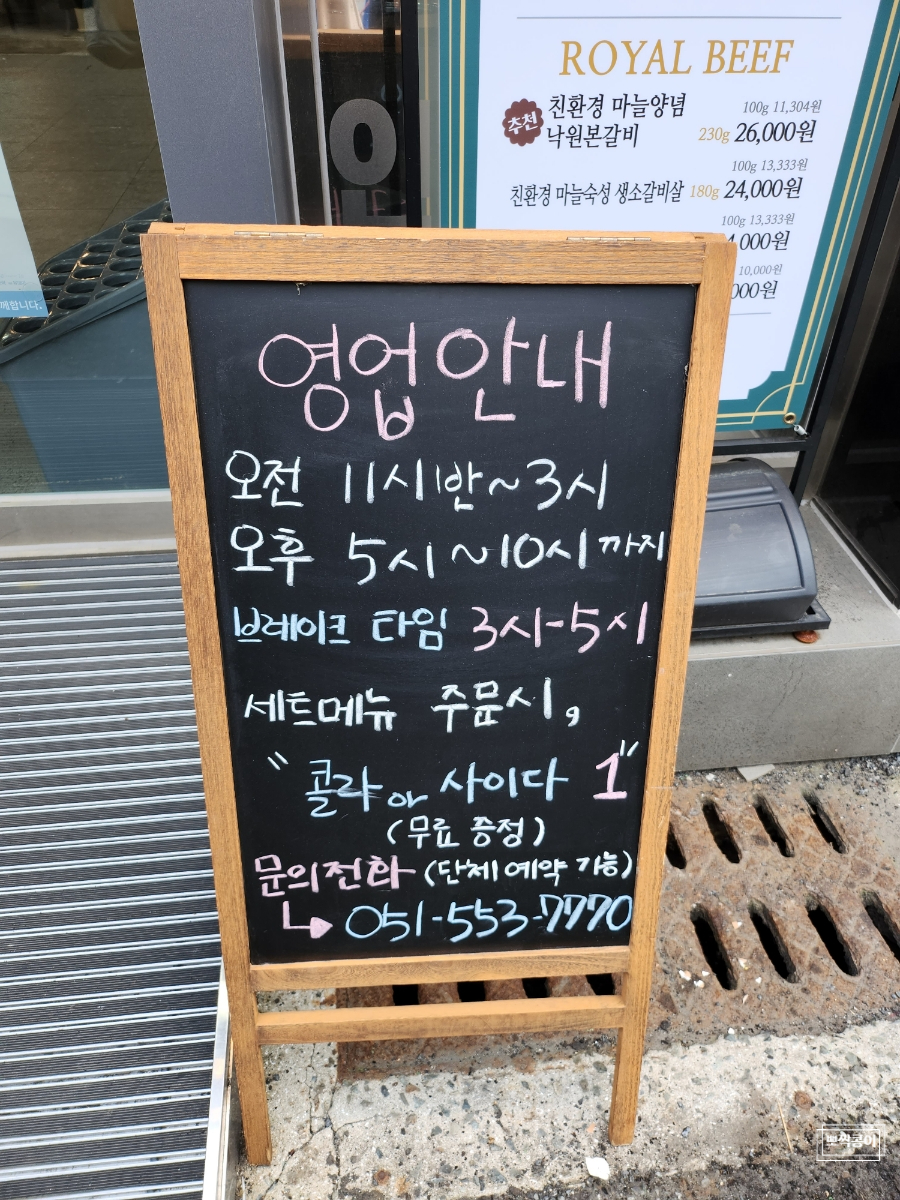 ROYAL BEEF
추천
친환경 마늘양념 100g 11,304원
낙원본갈비 230g 26,000원
100g 13,333원
친환경 마늘숙성 생소갈비살 180g 24,000원
100g 13,333원
4,000원
10,000원
000원
께합니다.
영업안내
오전 11시반~3시
오후 5시~10시까지
브레이크 타임 3시-5시
세트메뉴 주문시,
"콜라 or 사이다 1"
(무료 증정)
문의전화 (단체예약 가능)
051-553-7770